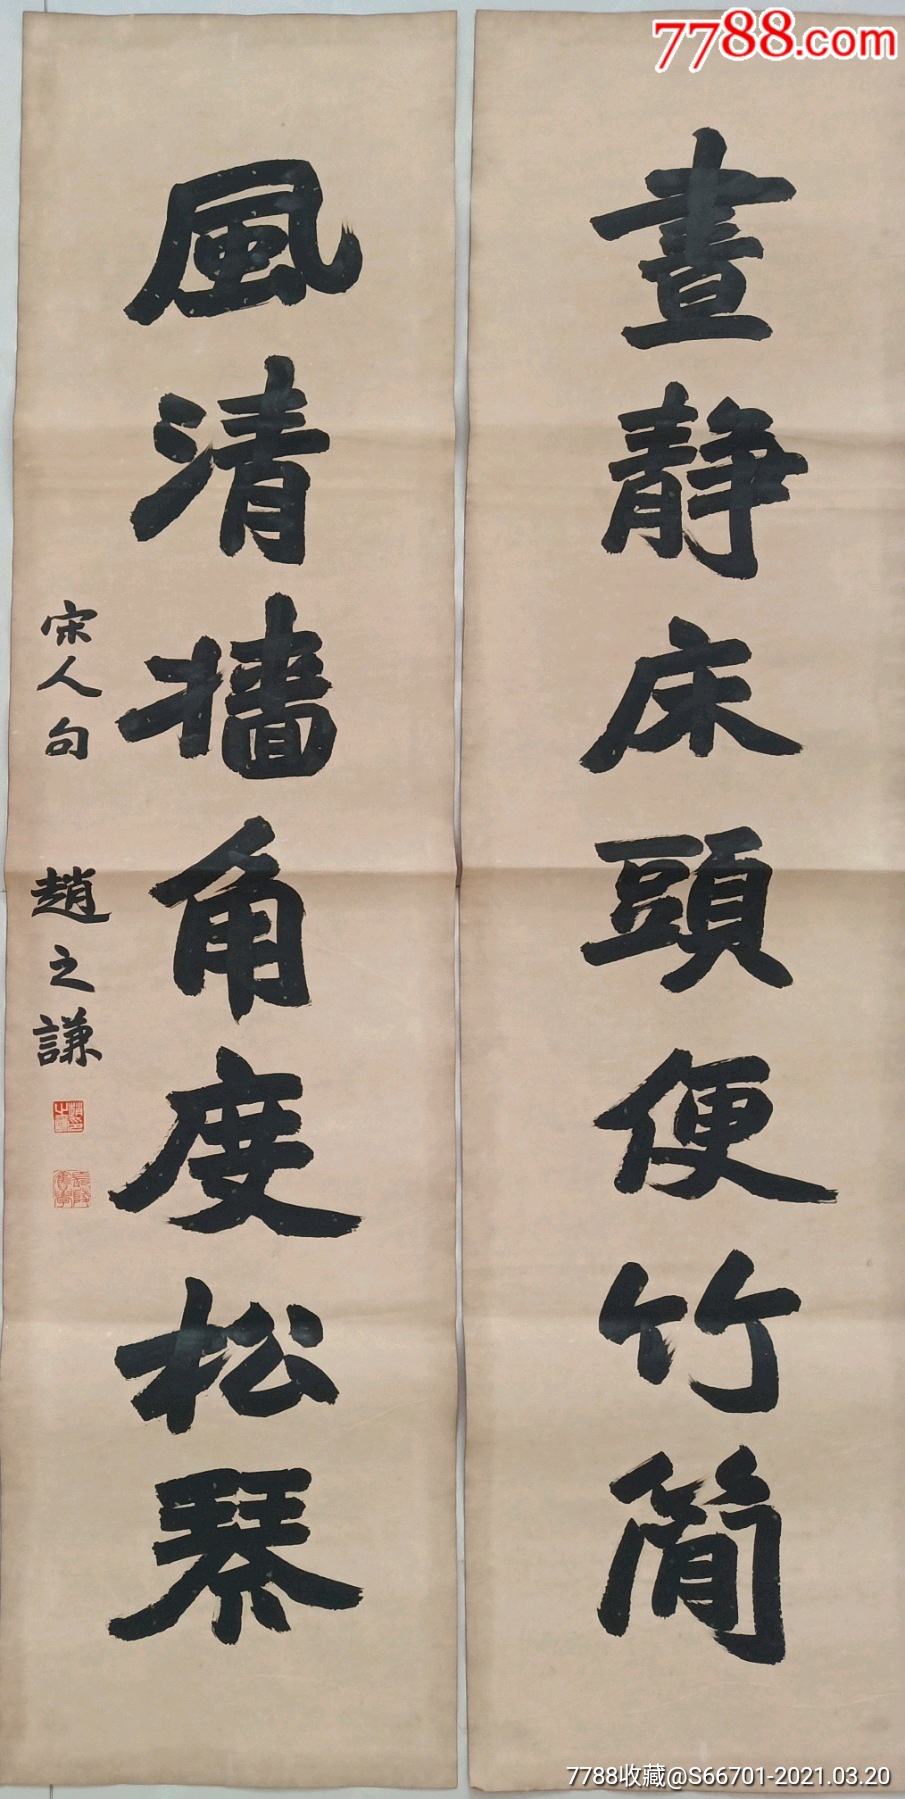 7788.com
晝靜床頭便竹簡
風清牆角度松琴
宋人句 趙之謙
7788收藏@S66701-2021.03.20